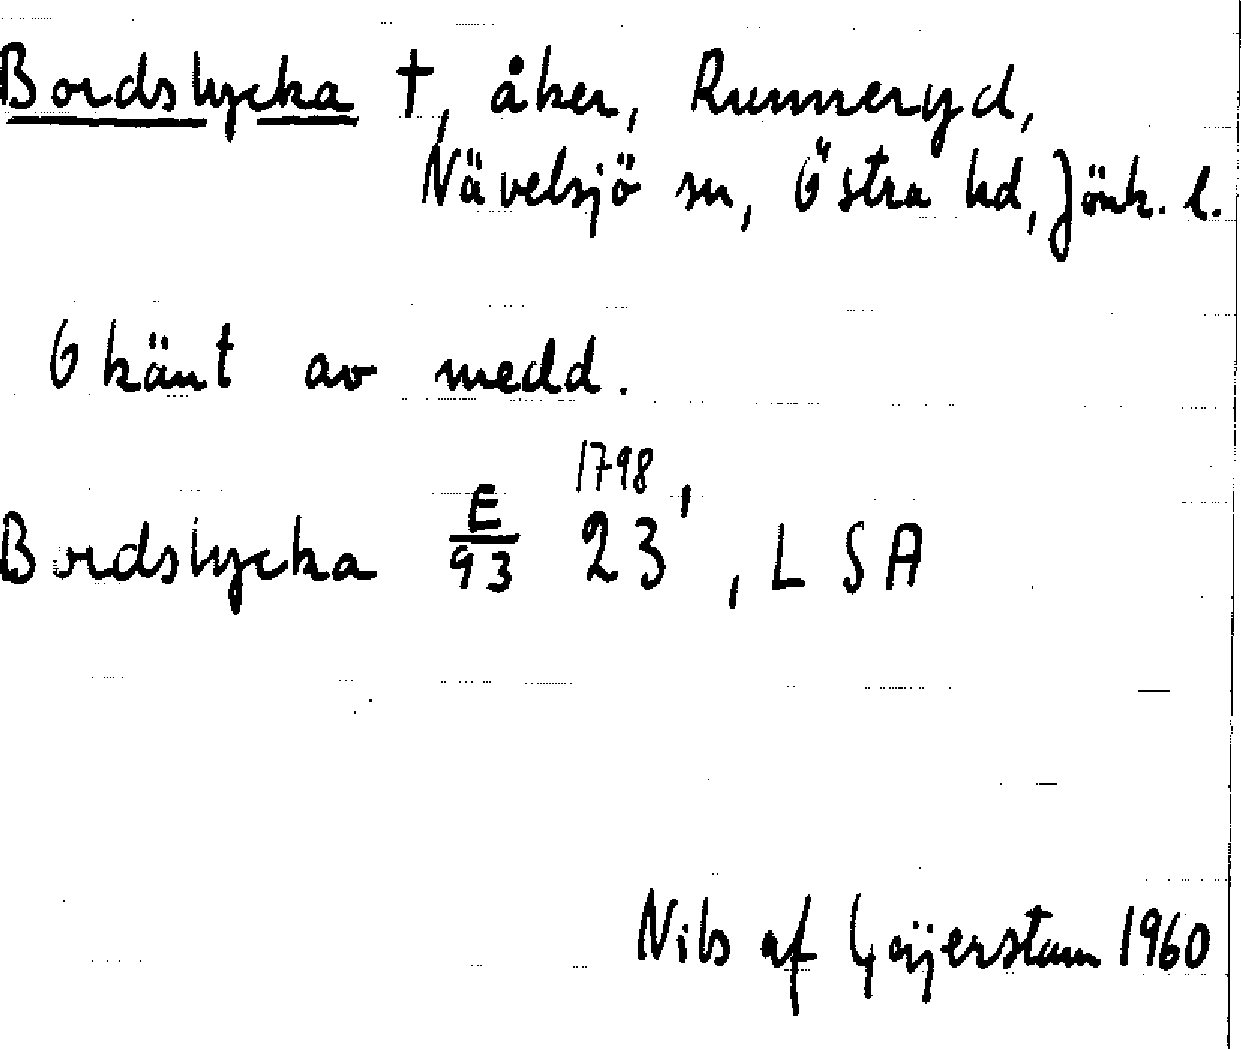 Bordslycka †, åker, Runneryd,
Nävelsjö sn, Östra hd, Jönk. l.
Okänt av medd.
Bordslycka E/93 23 1798, LSA
Nils af Geijerstam 1960